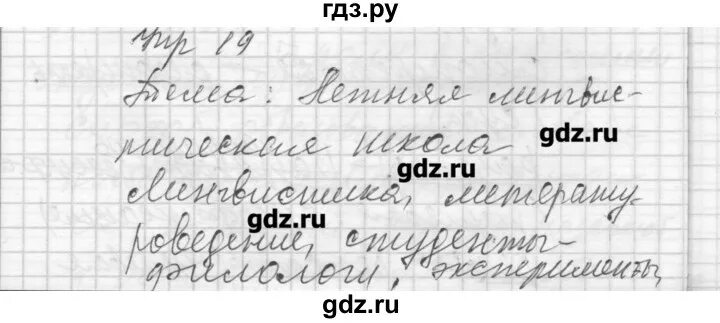 гдз.ру
Упр 19
Тема: Летняя лингвис-
тическая школа
gdz.ru
Лингвистика, литерату-
gdz.ru
роведение, студенты-
филологи, эксперименты,
gdz.ru